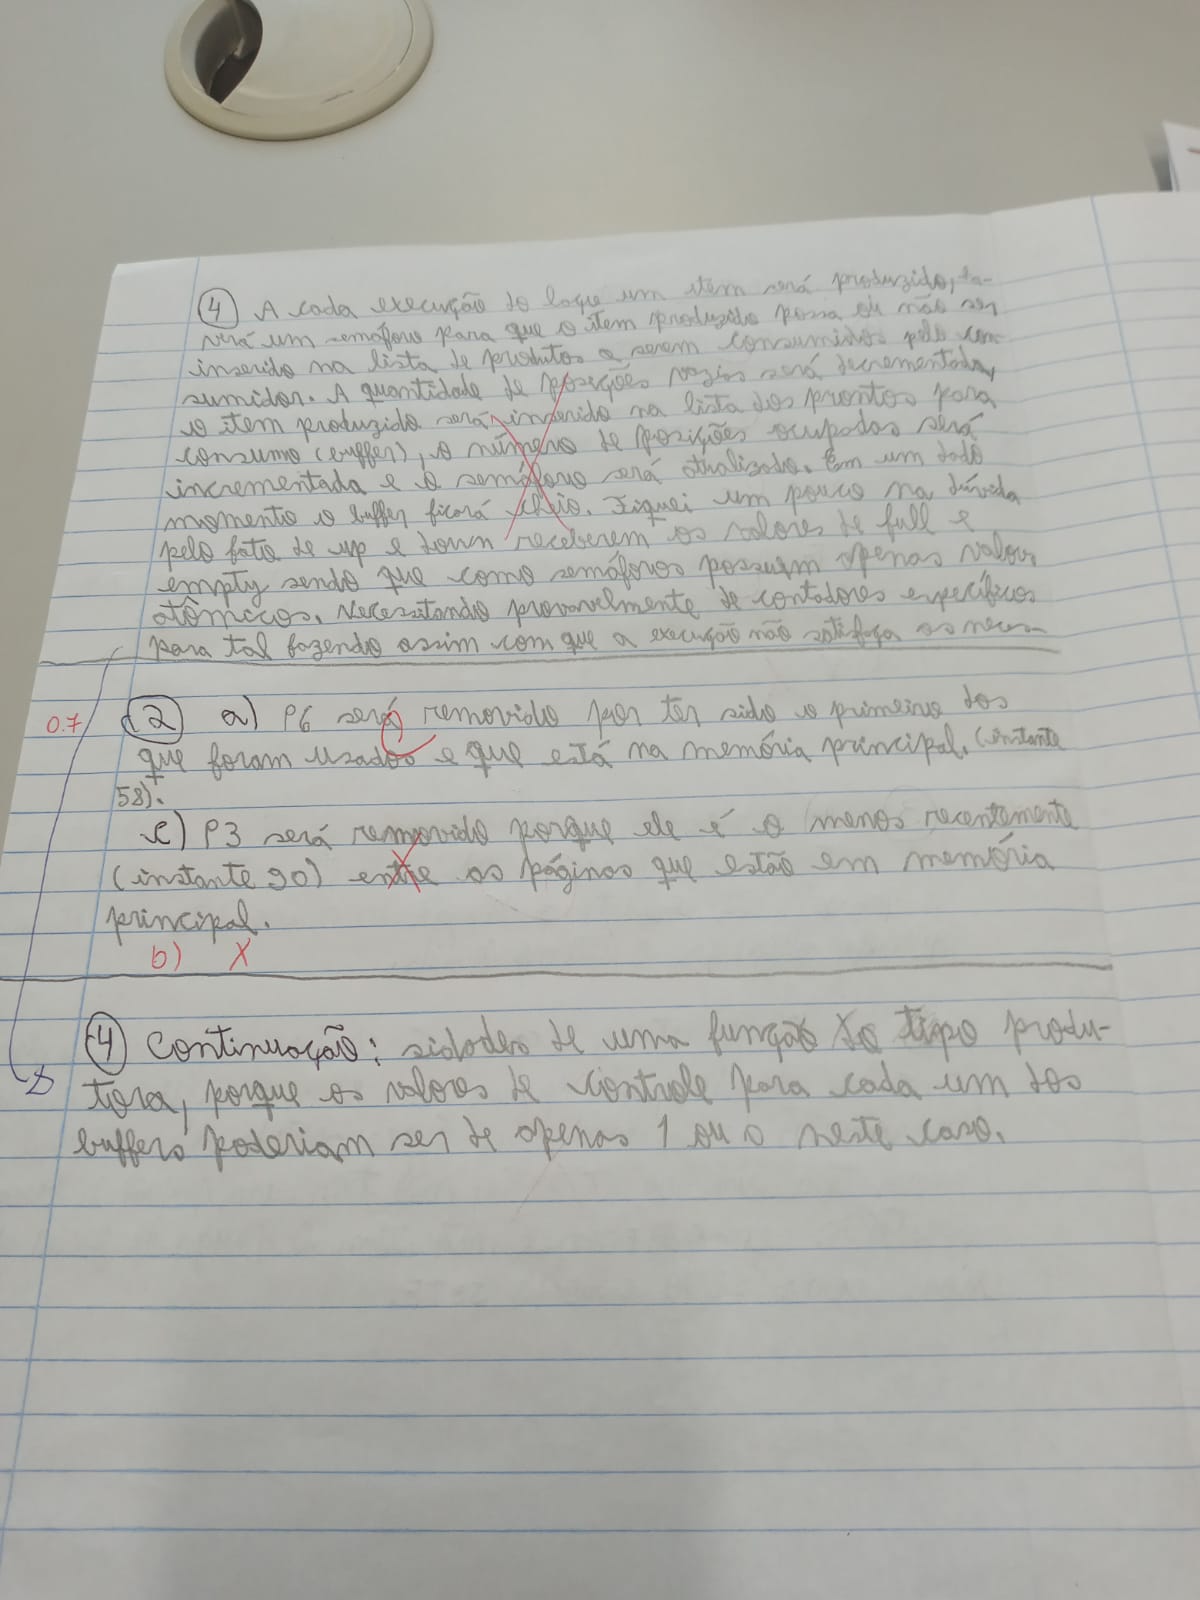 4 A cada execução do loque um item será produzido, ha-
verá um semáforo para que o item produzido possa ou não ser
inserido na lista de produtos a serem consumidos pelo con-
sumidor. A quantidade de posições vazias será decrementada,
o item produzido será inserido na lista dos prontos para
consumo (buffer), o número de posições ocupadas será
incrementada e o semáforo será atualizado. Em um dado
momento o buffer ficará cheio. Fiquei um pouco na dúvida
pelo fato de up e down receberem os valores de full e
empty sendo que como semáforos possuem apenas valores
atômicos. Necessitando provavelmente de contadores específicos
para tal fazendo assim com que a execução não satisfaça as neces-
0.7 2 a) P6 será removido por ter sido o primeiro dos
que foram usados e que está na memória principal. (instante
58).
c) P3 será removido porque ele é o menos recentemente
(instante 90) entre as páginas que estão em memória
principal.
b) X
4 Continuação: sidades de uma função do tipo produ-
tora, porque os valores de controle para cada um dos
buffers poderiam ser de apenas 1 ou 0 neste caso.